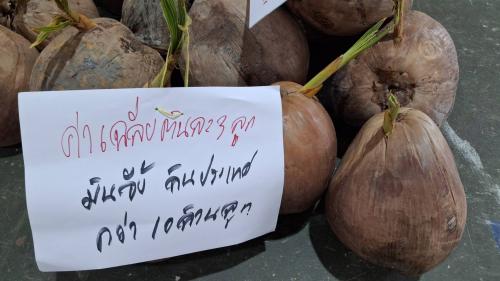 ค่าเฉลี่ยต้นละ 3 ลูก
มีนจัง ต้นประเทศ
กว่า 10 ล้านลูก